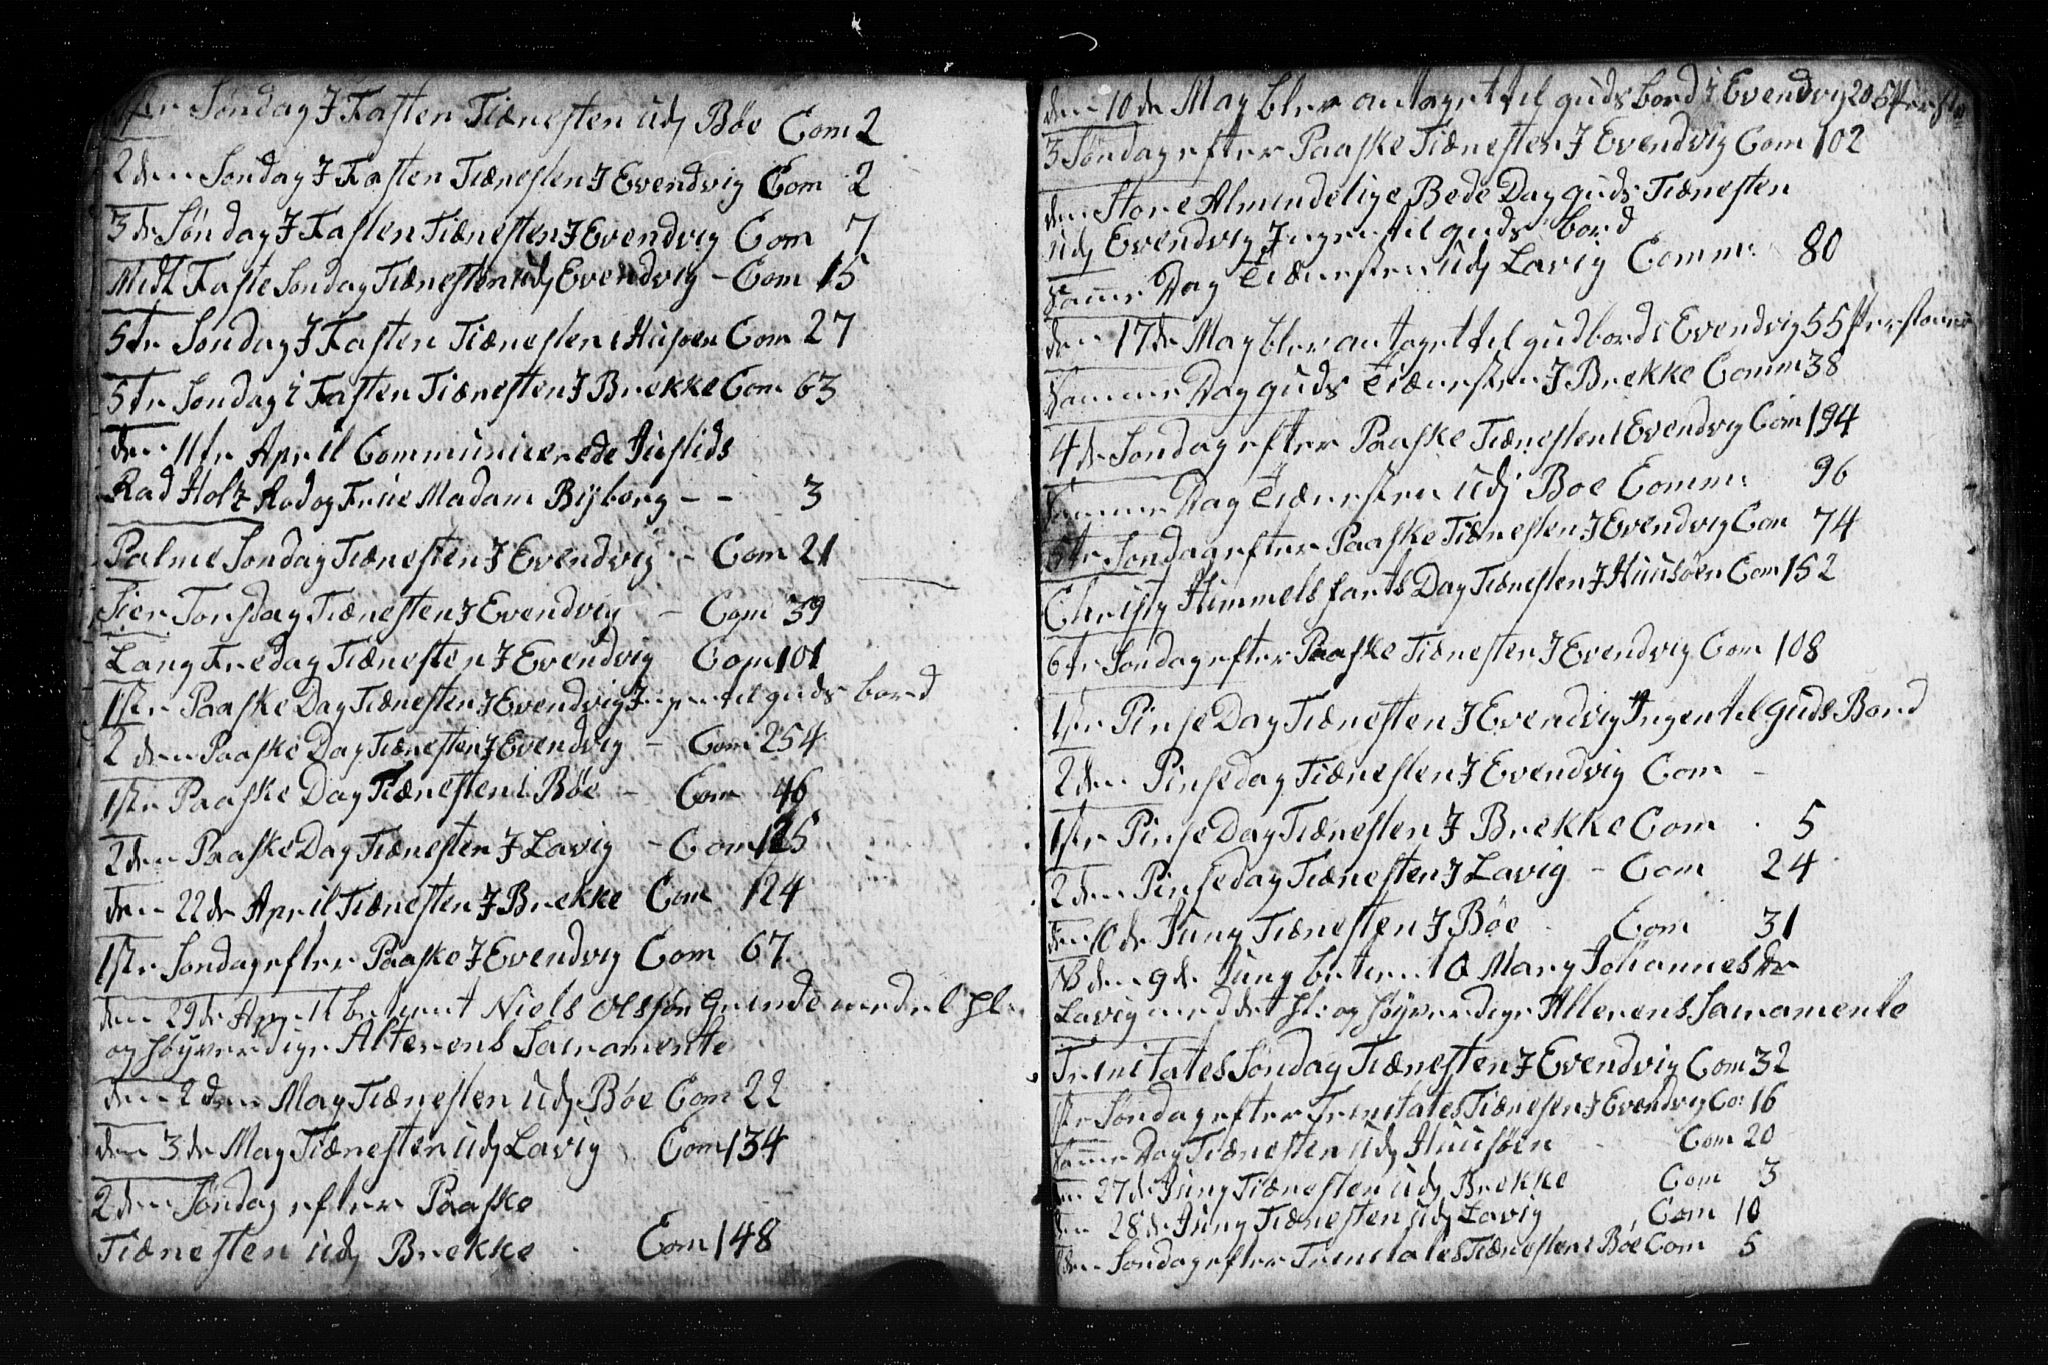 Søndag J Fasten Tiænesten udj Bøe Com 2
2den Søndag J Fasten Tiænesten J Evendvig Com 2
3de Søndag J Fasten Tiænesten J Evendvig Com 7
Midt Faste Søndag Tiænesten udj Evendvig - Com 15
5te Søndag J Fasten Tiænesten i Husøen Com 27
5te Søndag i Fasten Tiænesten J Brekke Com 63
den 11te April Communicerede Justids
Rad Holtz og Frue Madam Byborg - - 3
Palme Søndag Tiænesten J Evendvig - Com 21
Sier Torsdag Tiænesten J Evendvig - Com 39
Lang Fredag Tiænesten J Evendvig Com 101
1ste Paaske Dag Tiænesten J Evendvig Jngen til guds bord
2den Paaske Dag Tiænesten J Evendvig - Com 254
1ste Paaske Dag Tiænesten i Bøe - Com 46
2den Paaske Dag Tiænesten J Lavig - Com 125
den 22de April Tiænesten J Brekke Com 124
1ste Søndag efter Paaske J Evendvig Com 67
den 29de April betient Niels Olssøn Grinde med det hl:
og høyverdige Alterens Sacramente
den 2den May Tiænesten udj Bøe Com 22
den 3de May Tiænesten udj Lavig Com 134
2den Søndag efter Paaske
Tiænesten udj Brekke Com 148
den 10de May blev antaget til guds bord i Evendvig 20
3 Søndag efter Paaske Tiænesten J Evendvig Com 102
den Store Almindelige Bede Dag guds Tiænesten
udj Evendvig Jngen til guds bord
Samme Dag Tiænesten udj Lavig Comm: 80
den 17de May blev antaget til gudbord i Evendvig 55
Samme Dag guds Tiænesten J Brekke Comm 38
4de Søndag efter Paaske Tiænesten i Evendvig Com 194
Samme Dag Tiænesten udj Boe Comm: 96
5te Søndag efter Paaske Tiænesten J Evendvig Com 74
Christy Himmels farts Dag Tiænesten J Huusøen Com 152
6te Søndag efter Paaske Tiænesten J Evendvig Com 108
1ste Pinse Dag Tiænesten J Evendvig Jngen til Guds Bord
2den Pinsedag Tiænesten J Evendvig Com -
1ste Pinse Dag Tiænesten J Brekke Com 5
2den Pinsedag Tiænesten J Lavig - Com 24
den 10de Juny Tiænesten J Bøe Com 31
NB den 9de Juny betient Mary Johannesdr
Lavig med det hl: og høyverdige Alterens Sacramente
Trinitates Søndag Tiænesten J Evendvig Com 32
1ste Søndag efter Trinitates Tiænesten J Evendvig Co: 16
Samme Dag Tiænesten udj Huusøen Com 20
den 27de Juny Tiænesten udj Brekke Com 3
den 28de Juny Tiænesten udj Lavig Com 10
Søndag efter Trinitates Tiænesten i Bøe Com 5